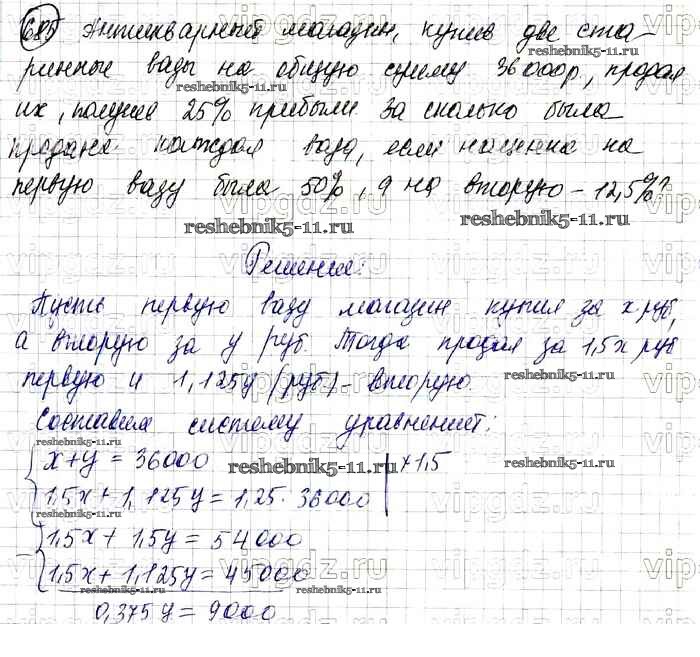 685 Антикварный магазин, купив две ста-
ринные вазы на общую сумму 36000р, продал
их, получив 25% прибыли за сколько была
продана каждая ваза, если наценка на
первую вазу была 50%, а на вторую - 12,5%?
Решение:
Пусть первую вазу магазин купил за x руб,
а вторую за y руб. Тогда продал за 1,5x руб
первую и 1,125y (руб) - вторую.
Составим систему уравнений:
x + y = 36000 | × 1,5
1,5x + 1,125y = 1,25 · 36000
1,5x + 1,5y = 54000
1,5x + 1,125y = 45000
0,375y = 9000
vipgdz.ru
reshebnik5-11.ru